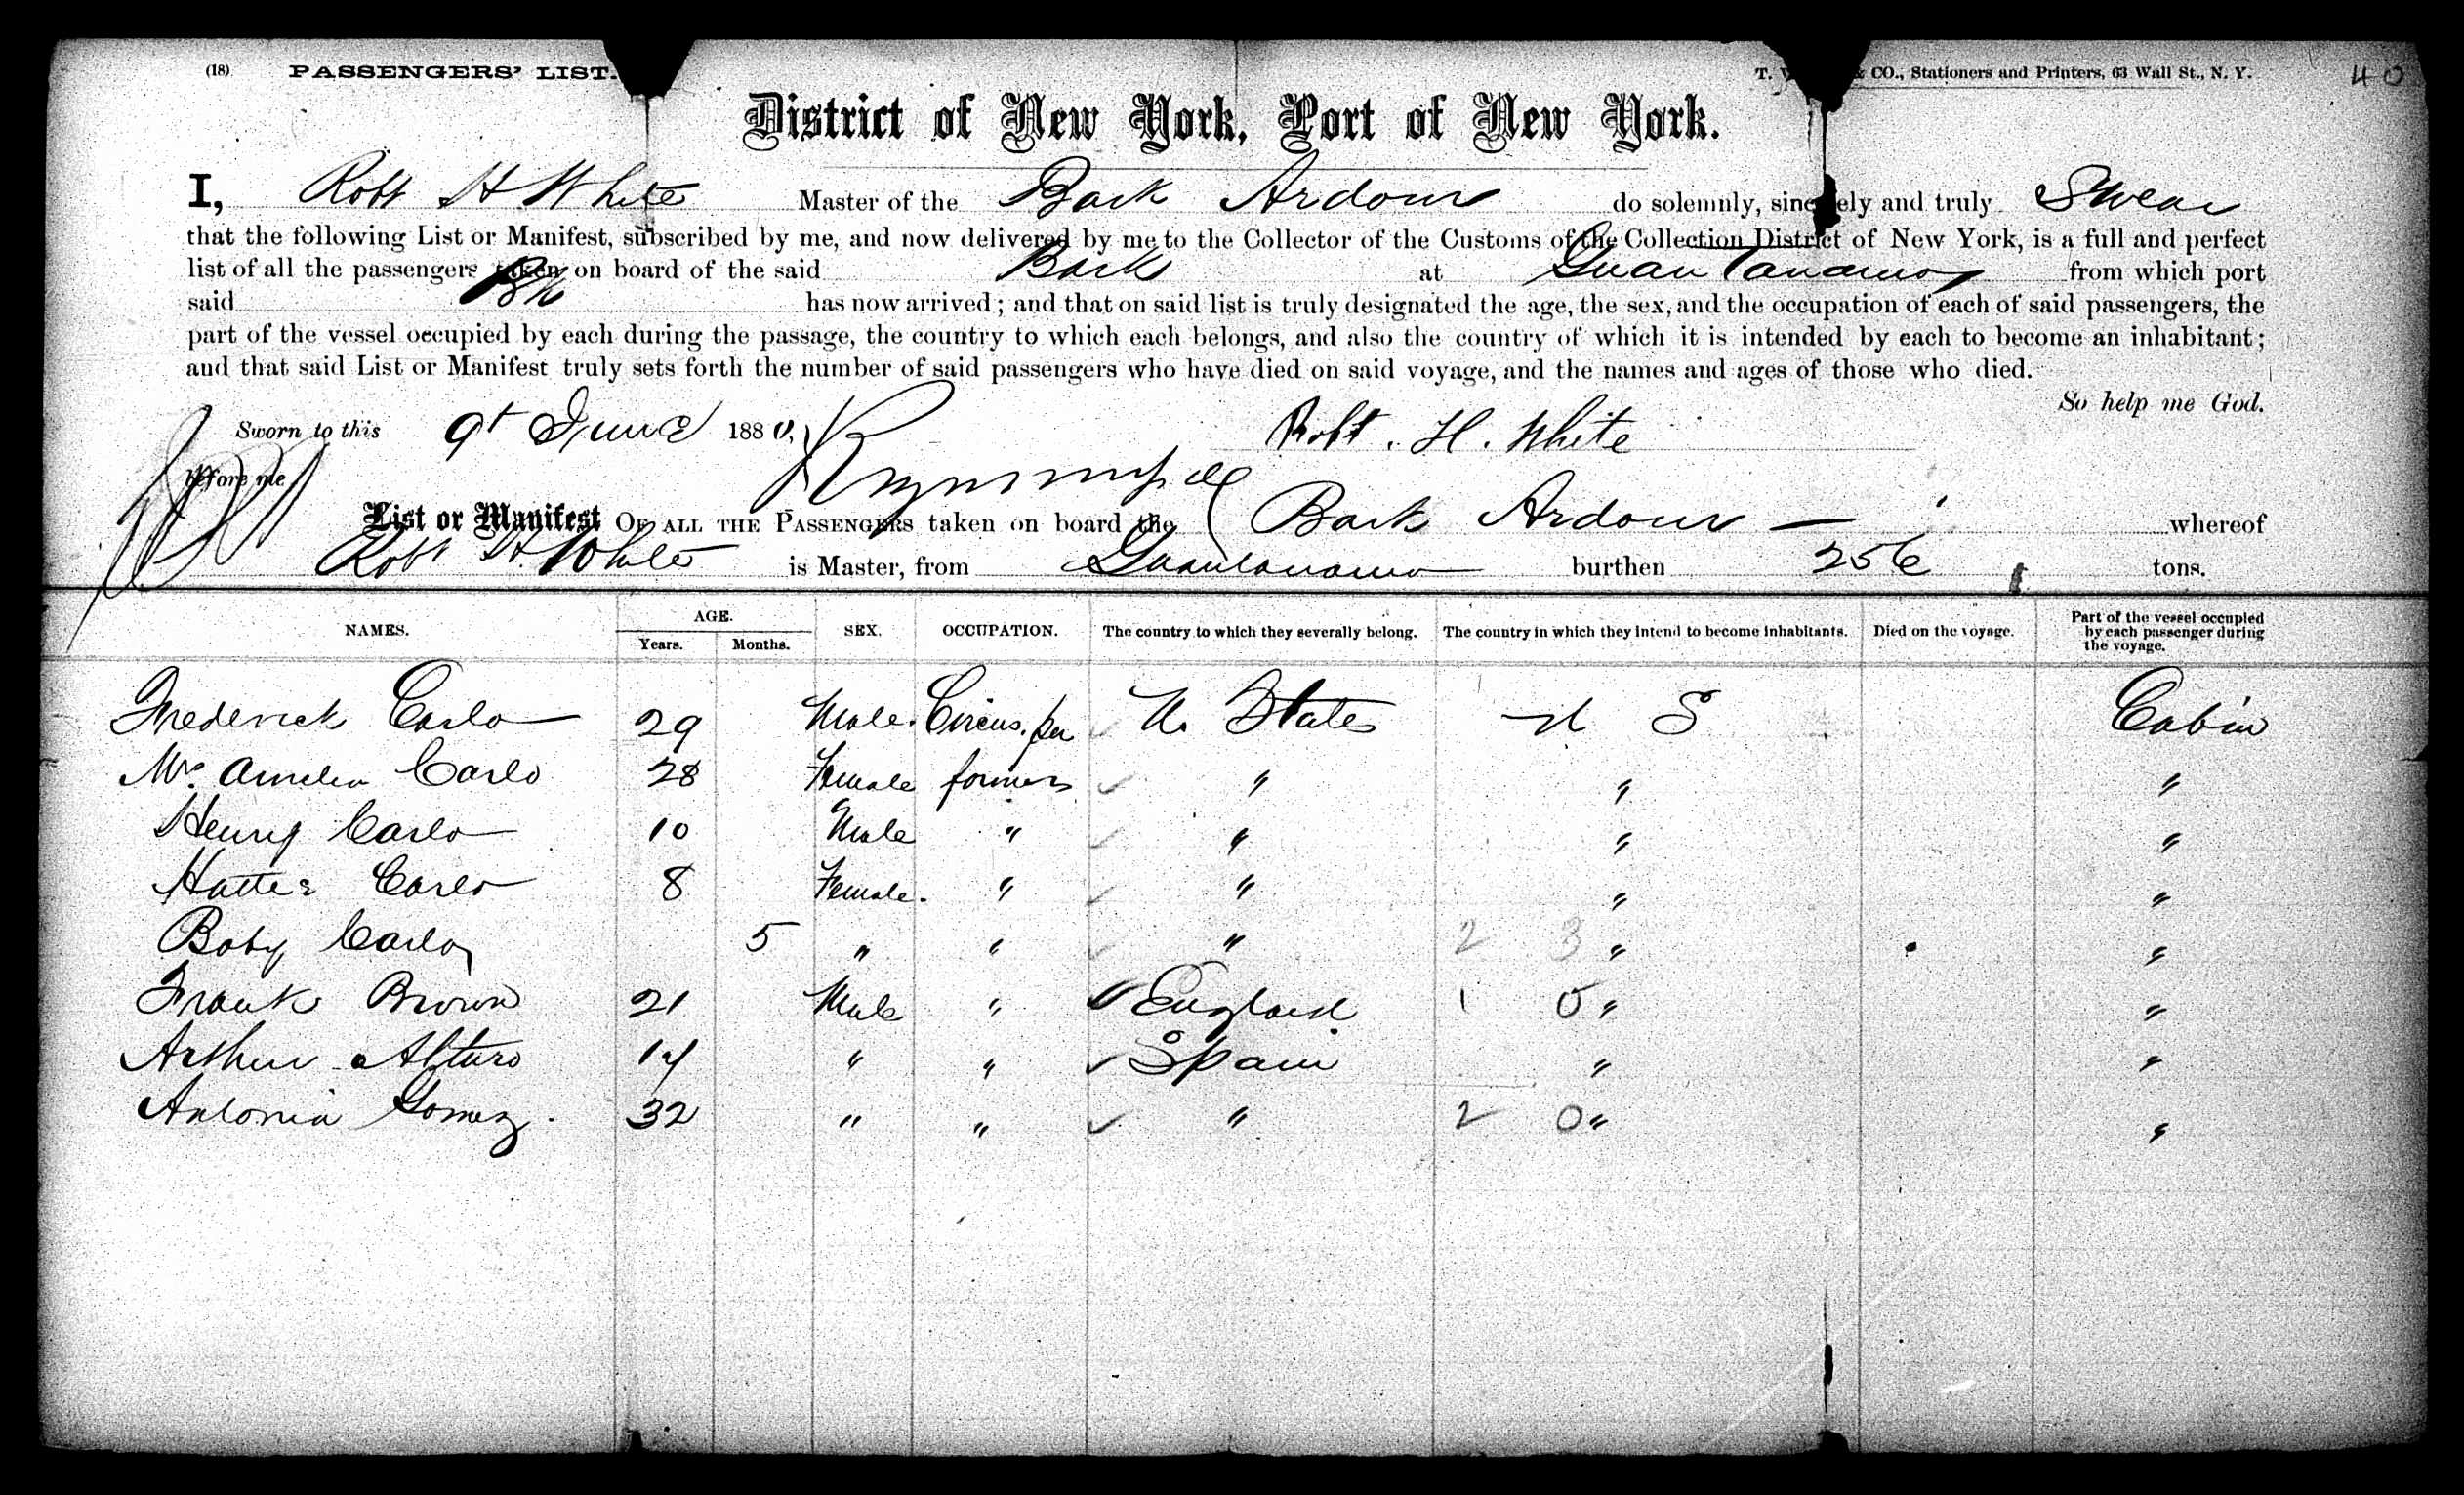 (18) PASSENGERS' LIST. T. & CO., Stationers and Printers, 63 Wall St., N. Y. 40
District of New York, Port of New York.
I, Robt H. White Master of the Bark Ardour do solemnly, sincerely and truly Swear
that the following List or Manifest, subscribed by me, and now delivered by me to the Collector of the Customs of the Collection District of New York, is a full and perfect
list of all the passengers taken on board of the said Bark at Guantanamo from which port
said Bk has now arrived; and that on said list is truly designated the age, the sex, and the occupation of each of said passengers, the
part of the vessel occupied by each during the passage, the country to which each belongs, and also the country of which it is intended by each to become an inhabitant;
and that said List or Manifest truly sets forth the number of said passengers who have died on said voyage, and the names and ages of those who died.
So help me God.
Sworn to this 9t June 1880, Robt. H. White
before me
List or Manifest OF ALL THE PASSENGERS taken on board the Bark Ardour — whereof
Robt H. White is Master, from Guantanamo burthen 256 tons.
NAMES. AGE. Years. Months. SEX. OCCUPATION. The country to which they severally belong. The country in which they intend to become inhabitants. Died on the voyage. Part of the vessel occupied by each passenger during the voyage.
Frederick Carlo 29 Male. Circus. per U. States U S Cabin
Mrs Amelia Carlo 28 Female formers " " "
Henry Carlo 10 Male " " " "
Hattie Carlo 8 Female. " " " "
Baby Carlo 5 " " " 2 3 " "
Frank Brown 21 Male " England 1 0 " "
Arthur Alturo 14 " " Spain " "
Antonia Gomez. 32 " " " 2 0 " "